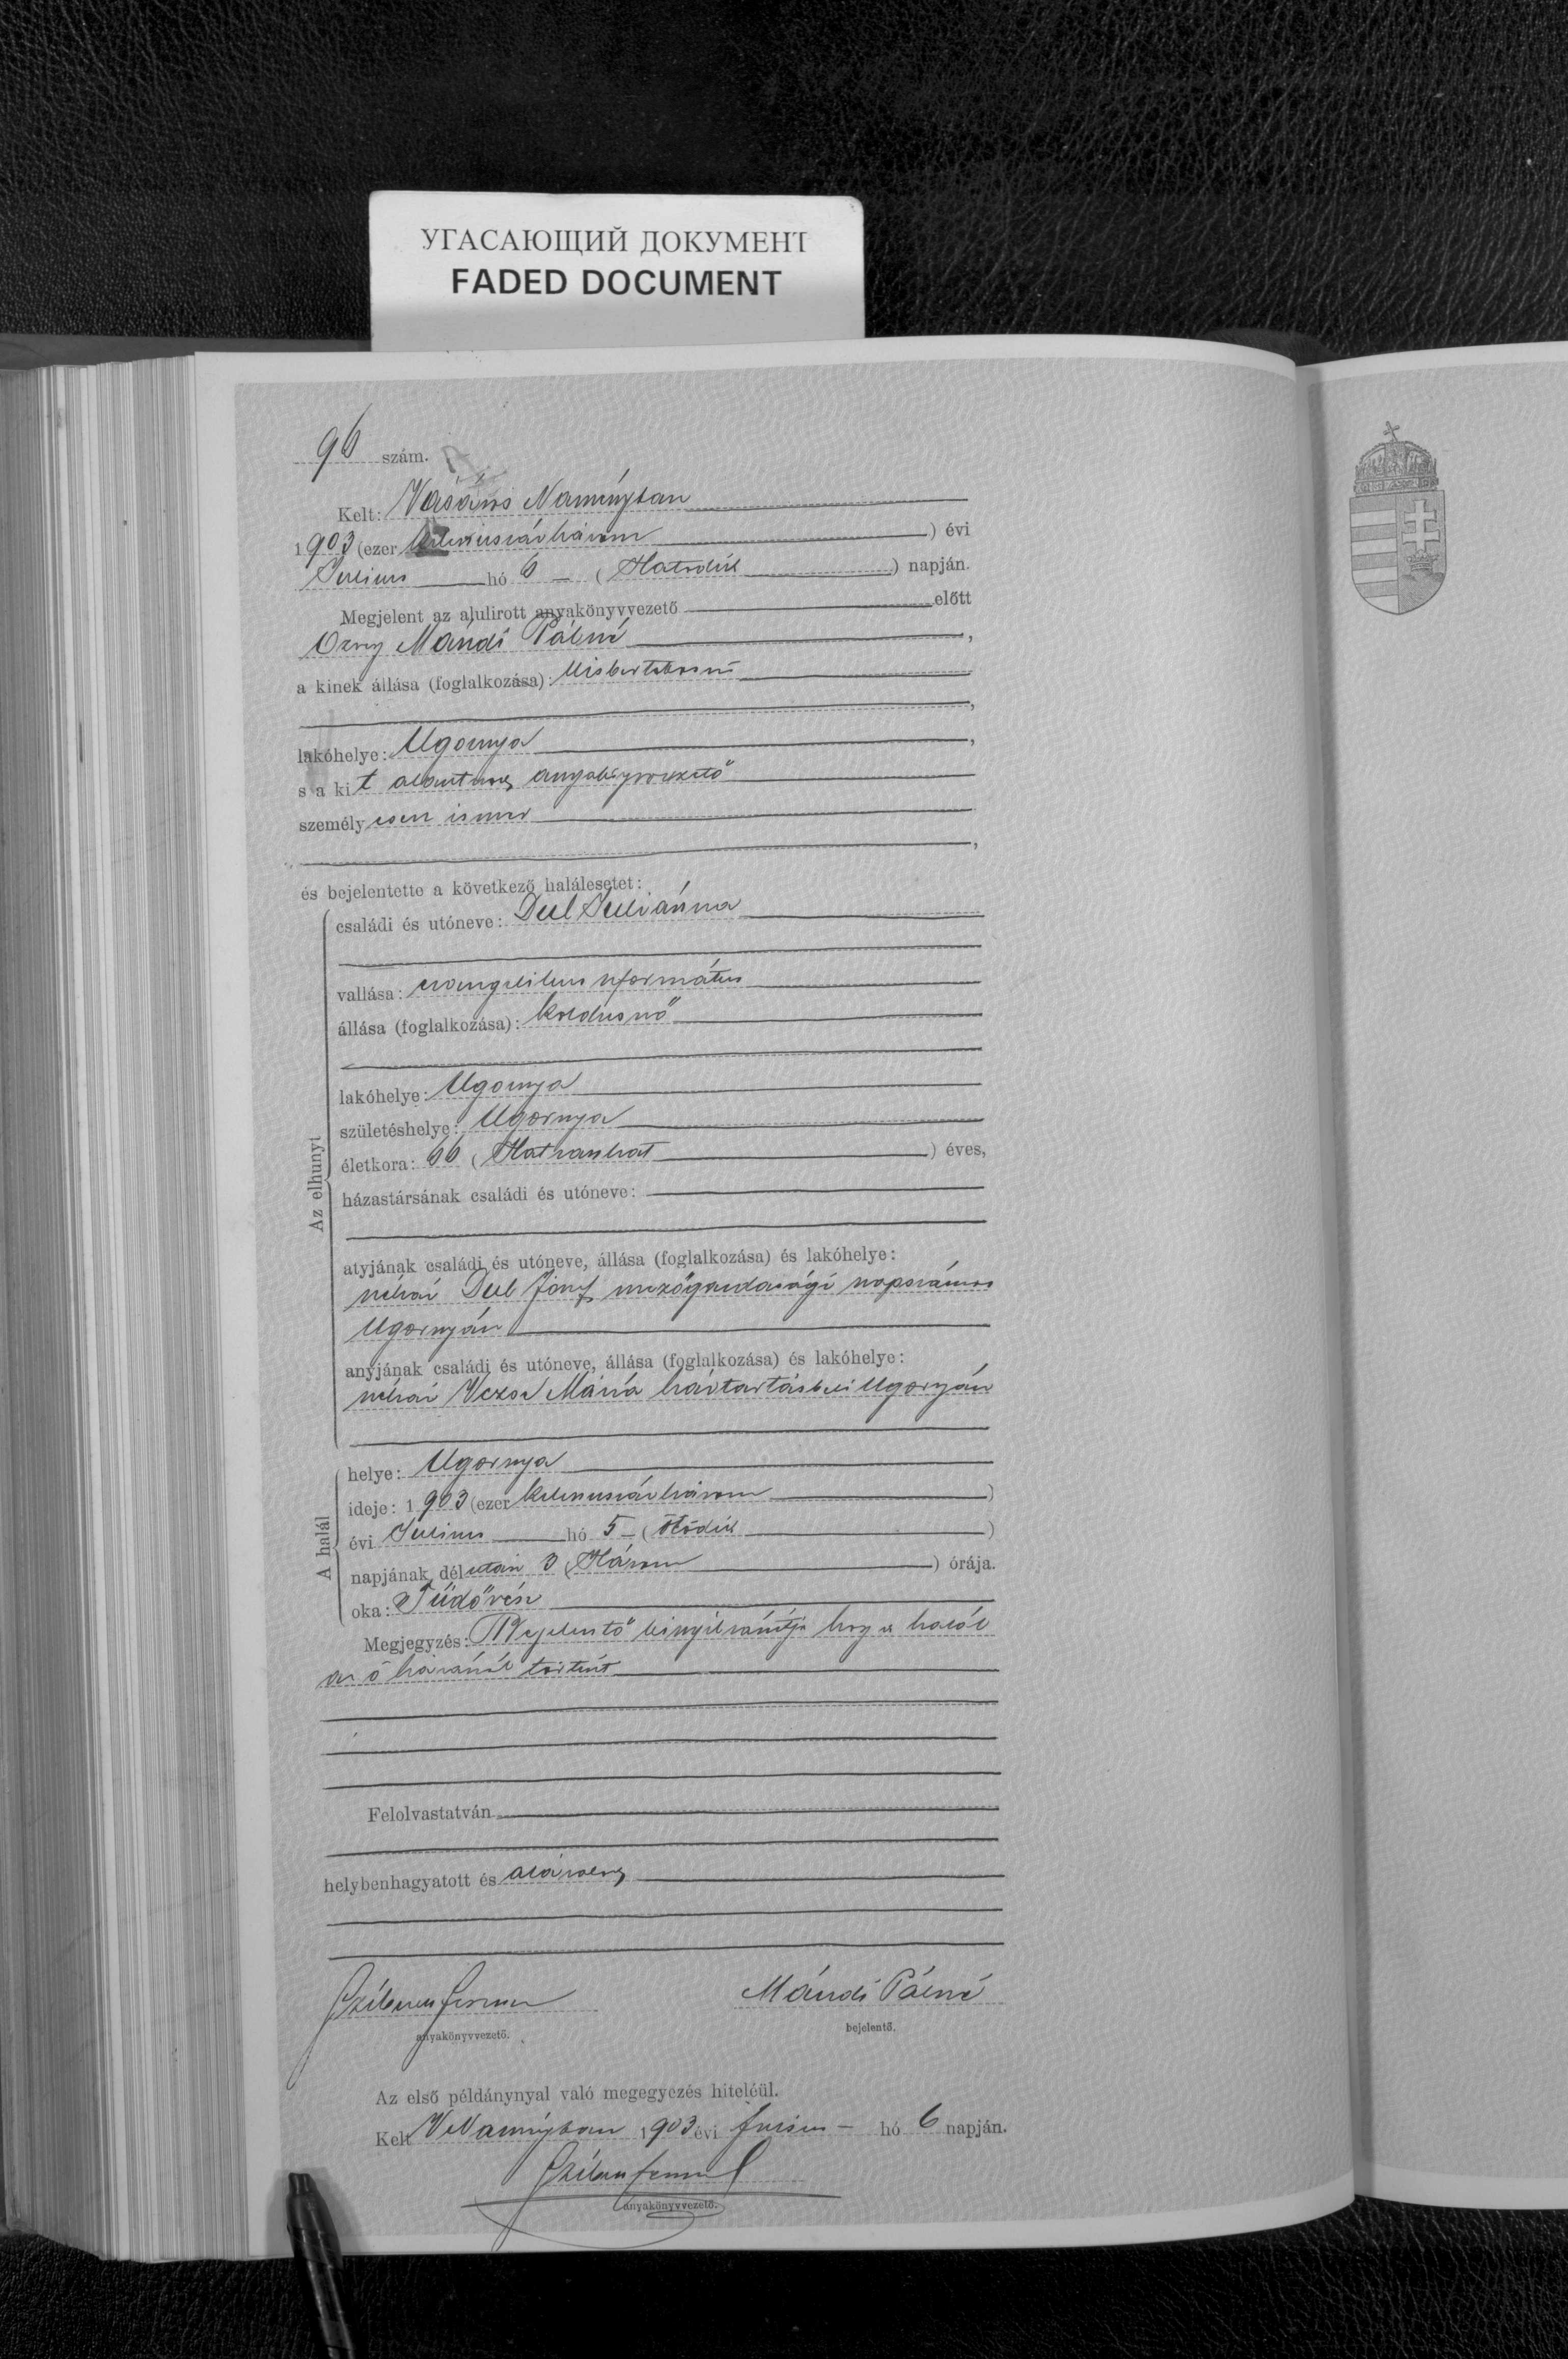 УГАСАЮЩИЙ ДОКУМЕНТ
FADED DOCUMENT
96 szám.
Kelt: Vásáros Naményban
1903 (ezer kilenczszázhárom) évi
Julius hó 6 – (Hatodik) napján.
Megjelent az alulirott anyakönyvvezető előtt
Mándi Pálné,
a kinek állása (foglalkozása): kisbirtokosnő
,
lakóhelye: Ugornya,
s a kit anyakönyvvezető
személyesen ismer
,
és bejelentette a következő halálesetet:
Az elhunyt
családi és utóneve: Deel Juliánna
vallása: evangelikus református
állása (foglalkozása): koldusnő
lakóhelye: Ugornya
születéshelye: Ugornya
életkora: 66 (Hatvanhat) éves,
házastársának családi és utóneve:
atyjának családi és utóneve, állása (foglalkozása) és lakóhelye:
néhai Deel József mezőgazdasági napszámos
Ugornyán
anyjának családi és utóneve, állása (foglalkozása) és lakóhelye:
néhai Mária háztartásbeli Ugornyán
A halál
helye: Ugornya
ideje: 1903 (ezer kilenczszázhárom)
évi Julius hó 5 – (ötödik)
napjának délután 3 (Három) órája.
oka: Tüdővész
Megjegyzés: Bejelentő kinyilvánítja hogy a halál
az ő házánál történt
Felolvastatván
helybenhagyatott és
anyakönyvvezető.
Mándi Pálné
bejelentő.
Az első példánynyal való megegyezés hiteléül.
Kelt VNaményban 1903 évi Julius – hó 6 napján.
anyakönyvvezető.